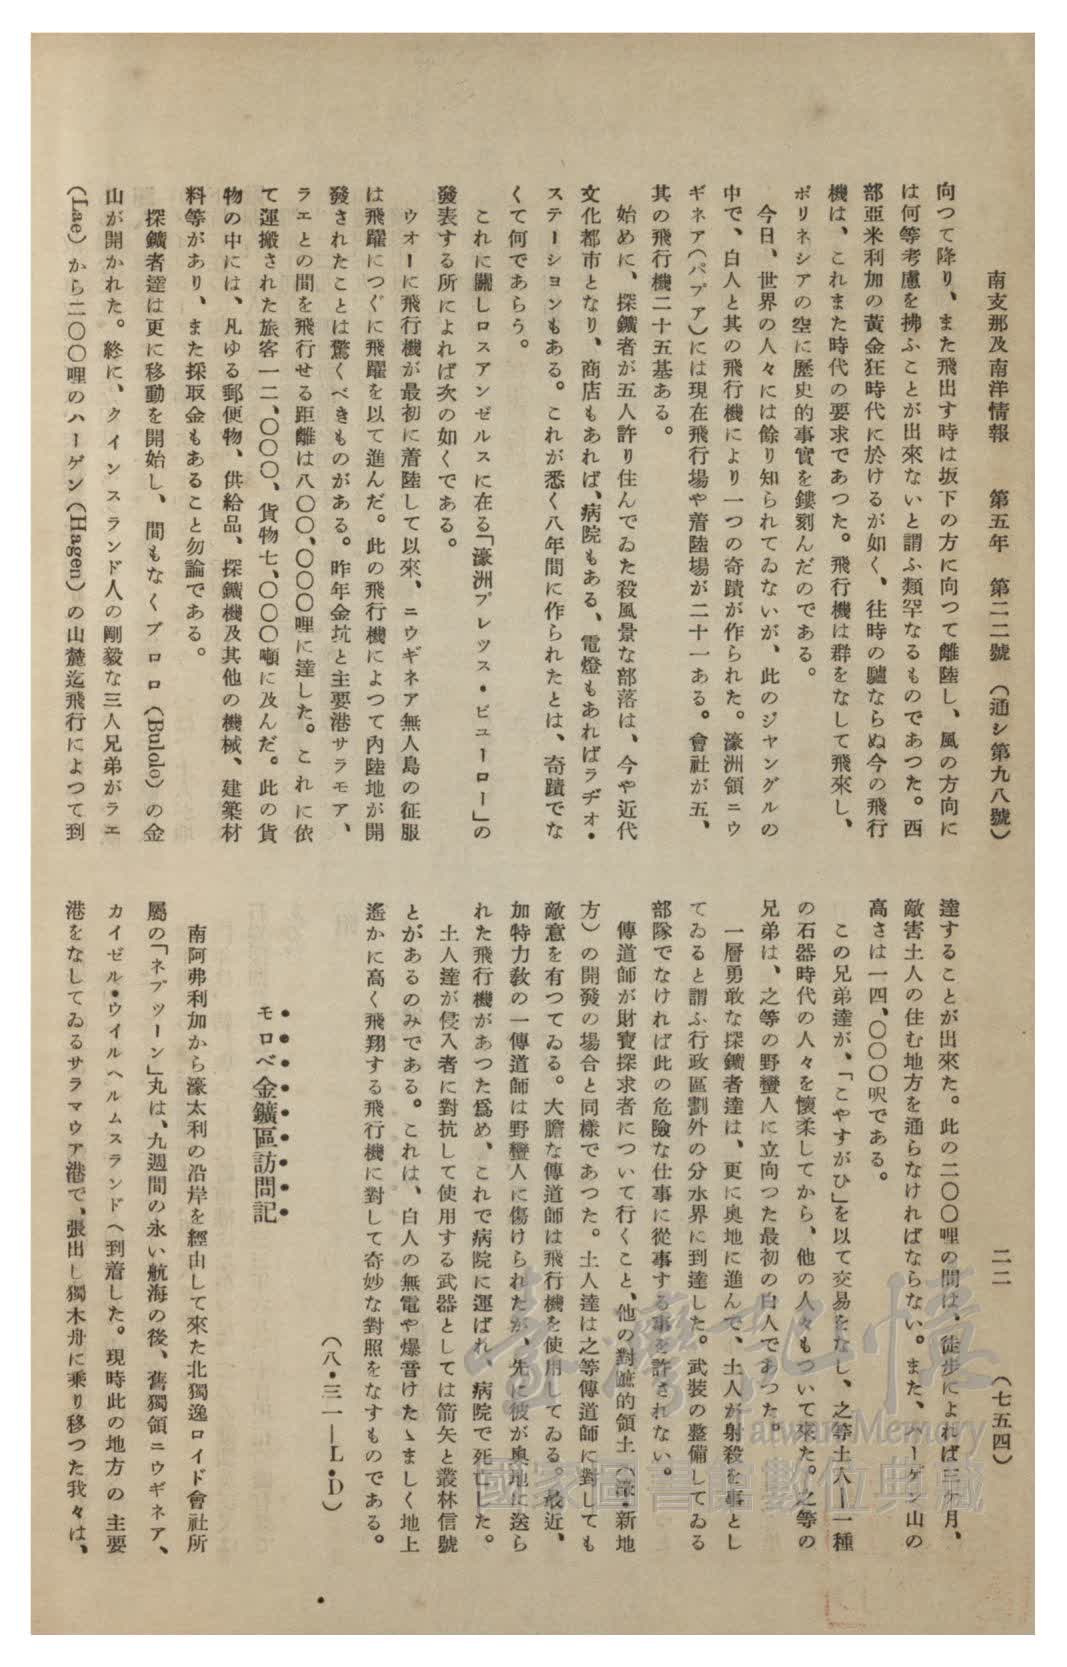 南支那及南洋情報　第五年　第二二號　（通シ第九八號）　二二　（七五四）
向つて降り、また飛出す時は坂下の方に向つて離陸し、風の方向に
は何等考慮を拂ふことが出來ないと謂ふ類罕なるものであつた。西
部亞米利加の黃金狂時代に於けるが如く、往時の驢ならぬ今の飛行
機は、これまた時代の要求であつた。飛行機は群をなして飛來し、
ポリネシアの空に歷史的事實を鏤刻んだのである。
今日、世界の人々には餘り知られてゐないが、此のジャングルの
中で、白人と其の飛行機により一つの奇蹟が作られた。濠洲領ニウ
ギネア（パプア）には現在飛行場や着陸場が二十一ある。會社が五、
其の飛行機二十五基ある。
始めに、探鑛者が五人許り住んでゐた殺風景な部落は、今や近代
文化都市となり、商店もあれば、病院もある、電燈もあればラヂオ・
ステーシヨンもある。これが悉く八年間に作られたとは、奇蹟でな
くて何であらう。
これに關しロスアンゼルスに在る「濠洲プレツス・ビユーロー」の
發表する所によれば次の如くである。
ウオーに飛行機が最初に着陸して以來、ニウギネア無人島の征服
は飛躍につぐに飛躍を以て進んだ。此の飛行機によつて內陸地が開
發されたことは驚くべきものがある。昨年金坑と主要港サラモア、
ラエとの間を飛行せる距離は八〇〇、〇〇〇哩に達した。これに依
て運搬された旅客一二、〇〇〇、貨物七、〇〇〇噸に及んだ。此の貨
物の中には、凡ゆる郵便物、供給品、探鑛機及其他の機械、建築材
料等があり、また採取金もあること勿論である。
探鑛者達は更に移動を開始し、間もなくブロロ（Bulolo）の金
山が開かれた。終に、クインスランド人の剛毅な三人兄弟がラエ
（Lae）から二〇〇哩のハーゲン（Hagen）の山麓迄飛行によつて到
達することが出來た。此の二〇〇哩の間は、徒步によれば三ケ月、
敵害土人の住む地方を通らなければならない。また、ハーゲン山の
高さは一四、〇〇〇呎である。
この兄弟達が、「こやすがひ」を以て交易をなし、之等土人――一種
の石器時代の人々を懷柔してから、他の人々もついて來た。之等の
兄弟は、之等の野蠻人に立向つた最初の白人であつた。
一層勇敢な探鑛者達は、更に奧地に進んで、土人が射殺を事とし
てゐると謂ふ行政區劃外の分水界に到達した。武裝の整備してゐる
部隊でなければ此の危險な仕事に從事する事を許されない。
傳道師が財寶探求者について行くこと、他の對蹠的領土（濠・新地
方）の開發の場合と同樣であつた。土人達は之等傳道師に對しても
敵意を有つてゐる。大膽な傳道師は飛行機を使用してゐる。最近、
加特力敎の一傳道師は野蠻人に傷けられたが、先に彼が奧地に送ら
れた飛行機があつた爲め、これで病院に運ばれ、病院で死亡した。
土人達が侵入者に對抗して使用する武器としては箭矢と叢林信號
とがあるのみである。これは、白人の無電や爆音けたゝましく地上
遙かに高く飛翔する飛行機に對して奇妙な對照をなすものである。
（八・三一―L・D）
モロベ金鑛區訪問記
南阿弗利加から濠太利の沿岸を經由して來た北獨逸ロイド會社所
屬の「ネプツーン」丸は、九週間の永い航海の後、舊獨領ニウギネア、
カイゼル・ウイルヘルムスランドへ到着した。現時此の地方の主要
港をなしてゐるサラマウア港で、張出し獨木舟に乘り移つた我々は、
臺灣記憶
Taiwan Memory
國家圖書館數位典藏